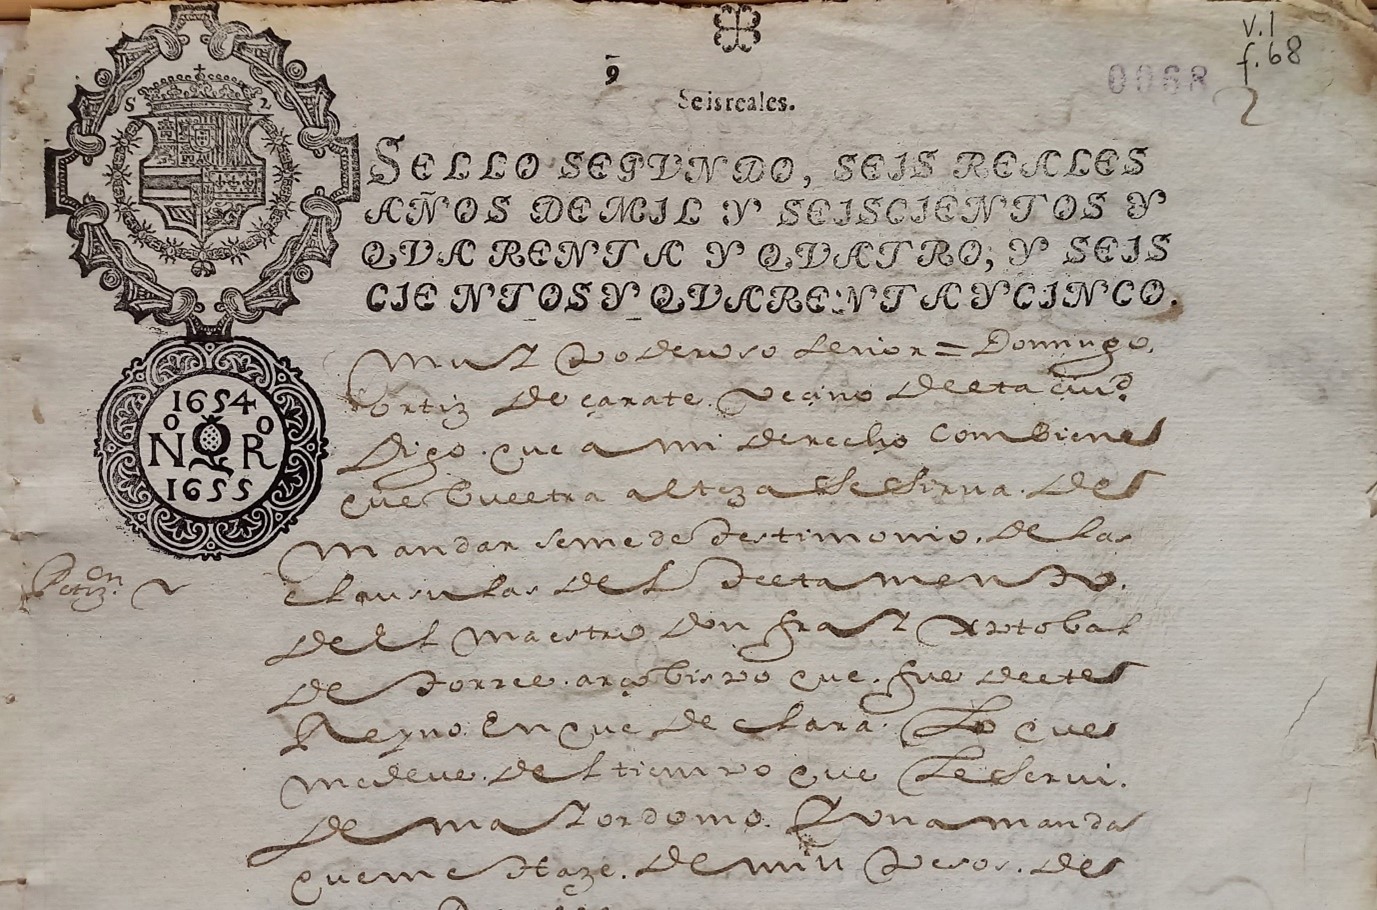 v.1
f.68
0068
2
9
Seis reales.
S 2
SELLO SEGVNDO, SEIS REALES
AÑOS DE MIL Y SEISCIENTOS Y
QVARENTA Y QVATRO, Y SEIS
CIENTOS Y QVARENTA Y CINCO.
1654
NO RO
1655
Muy Poderoso Señor = Domingo
ortiz de çarate. Veçino desta ciud.
Digo. que a mi derecho combiene
que Vuestra alteza se sirva. de
mandar se me de testimonio. de las
clausulas del testamento.
del maestro don fray xptobal
de torres. arçobispo que. fue deste
Reyno. En que declara. Lo que
me deve. del tiempo que Le servi.
de mayordomo. Y una manda
que me haze. de mill pesos. de
Petizon